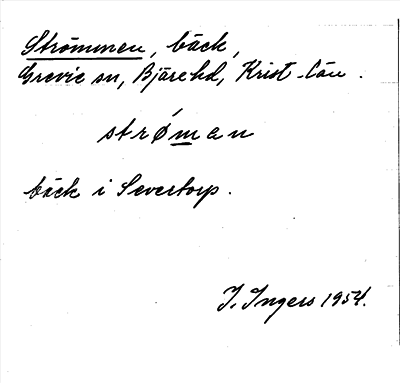 Strömmen, bäck,
Grevie sn, Bjäre hd, Krist. län.
strǿman
bäck i Severtorp.
I. Ingers 1954.